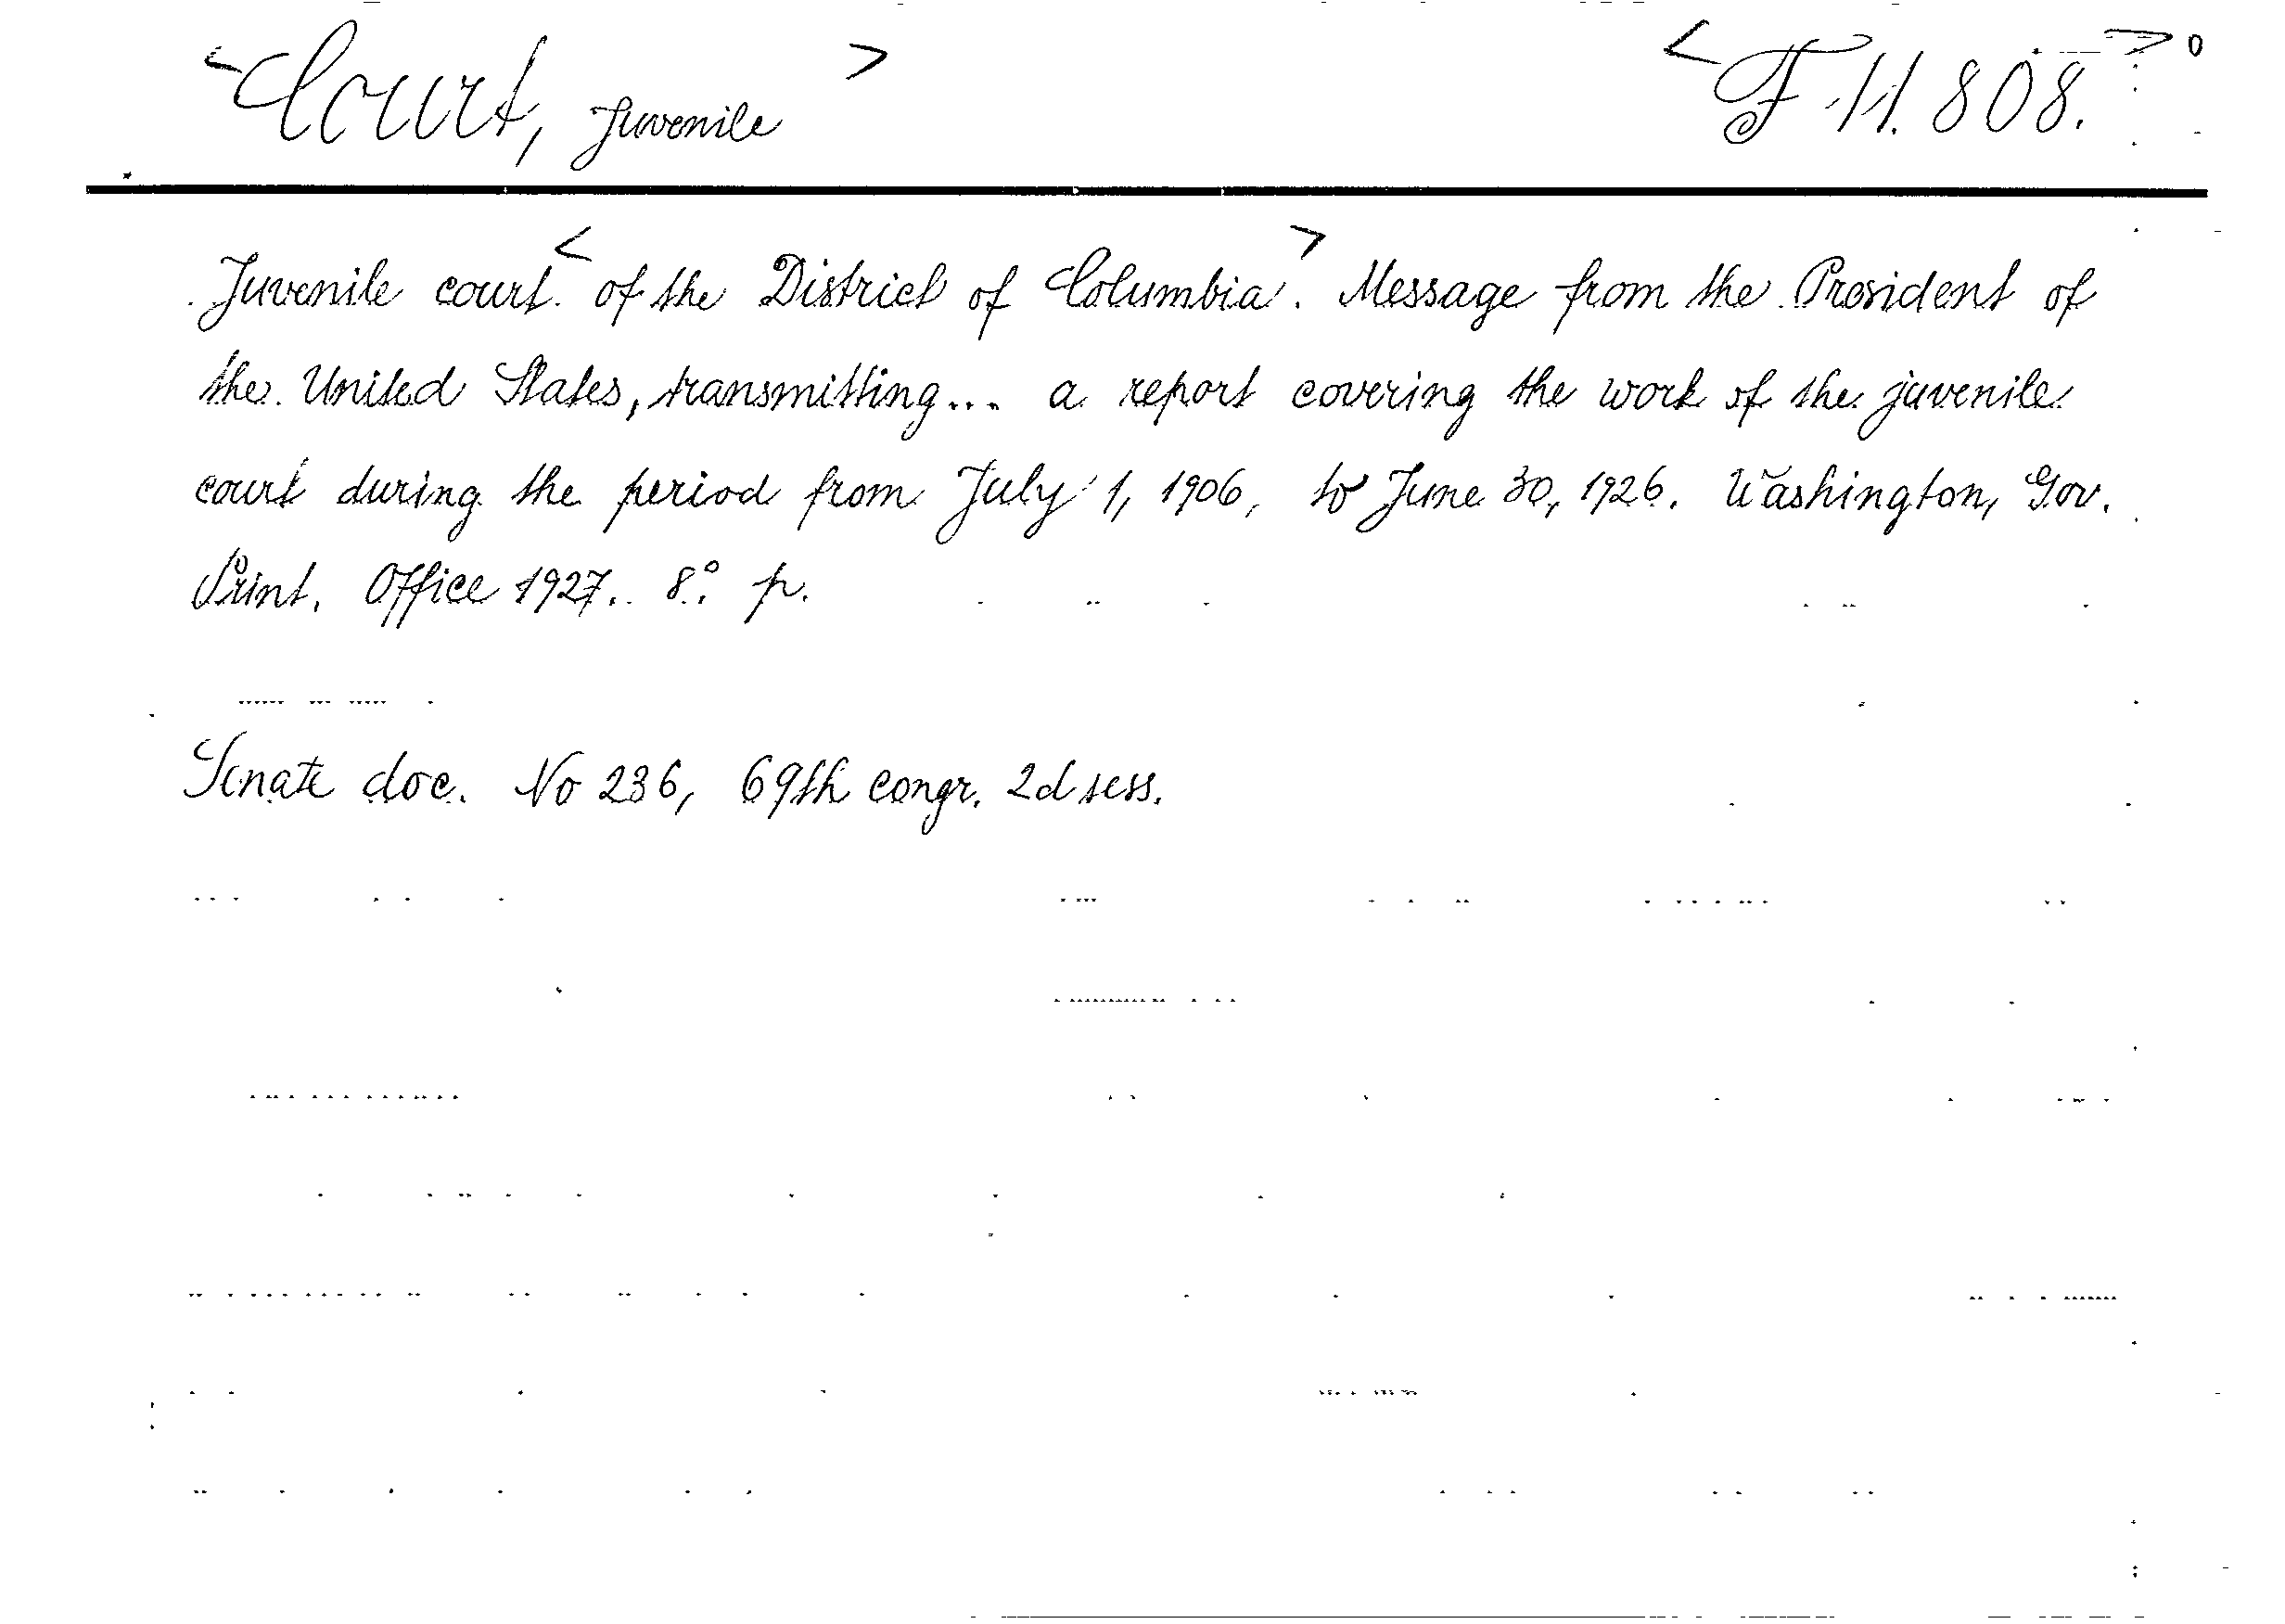 <Court, Juvenile> <F 11.808.>0
Juvenile court <of the District of Columbia>. Message from the President of
the United States, transmitting... a report covering the work of the juvenile
court during the period from July 1, 1906, to June 30, 1926. Washington, Gov.
Print. Office 1927. 8° p.
Senate doc. No 236, 69th congr. 2d sess.